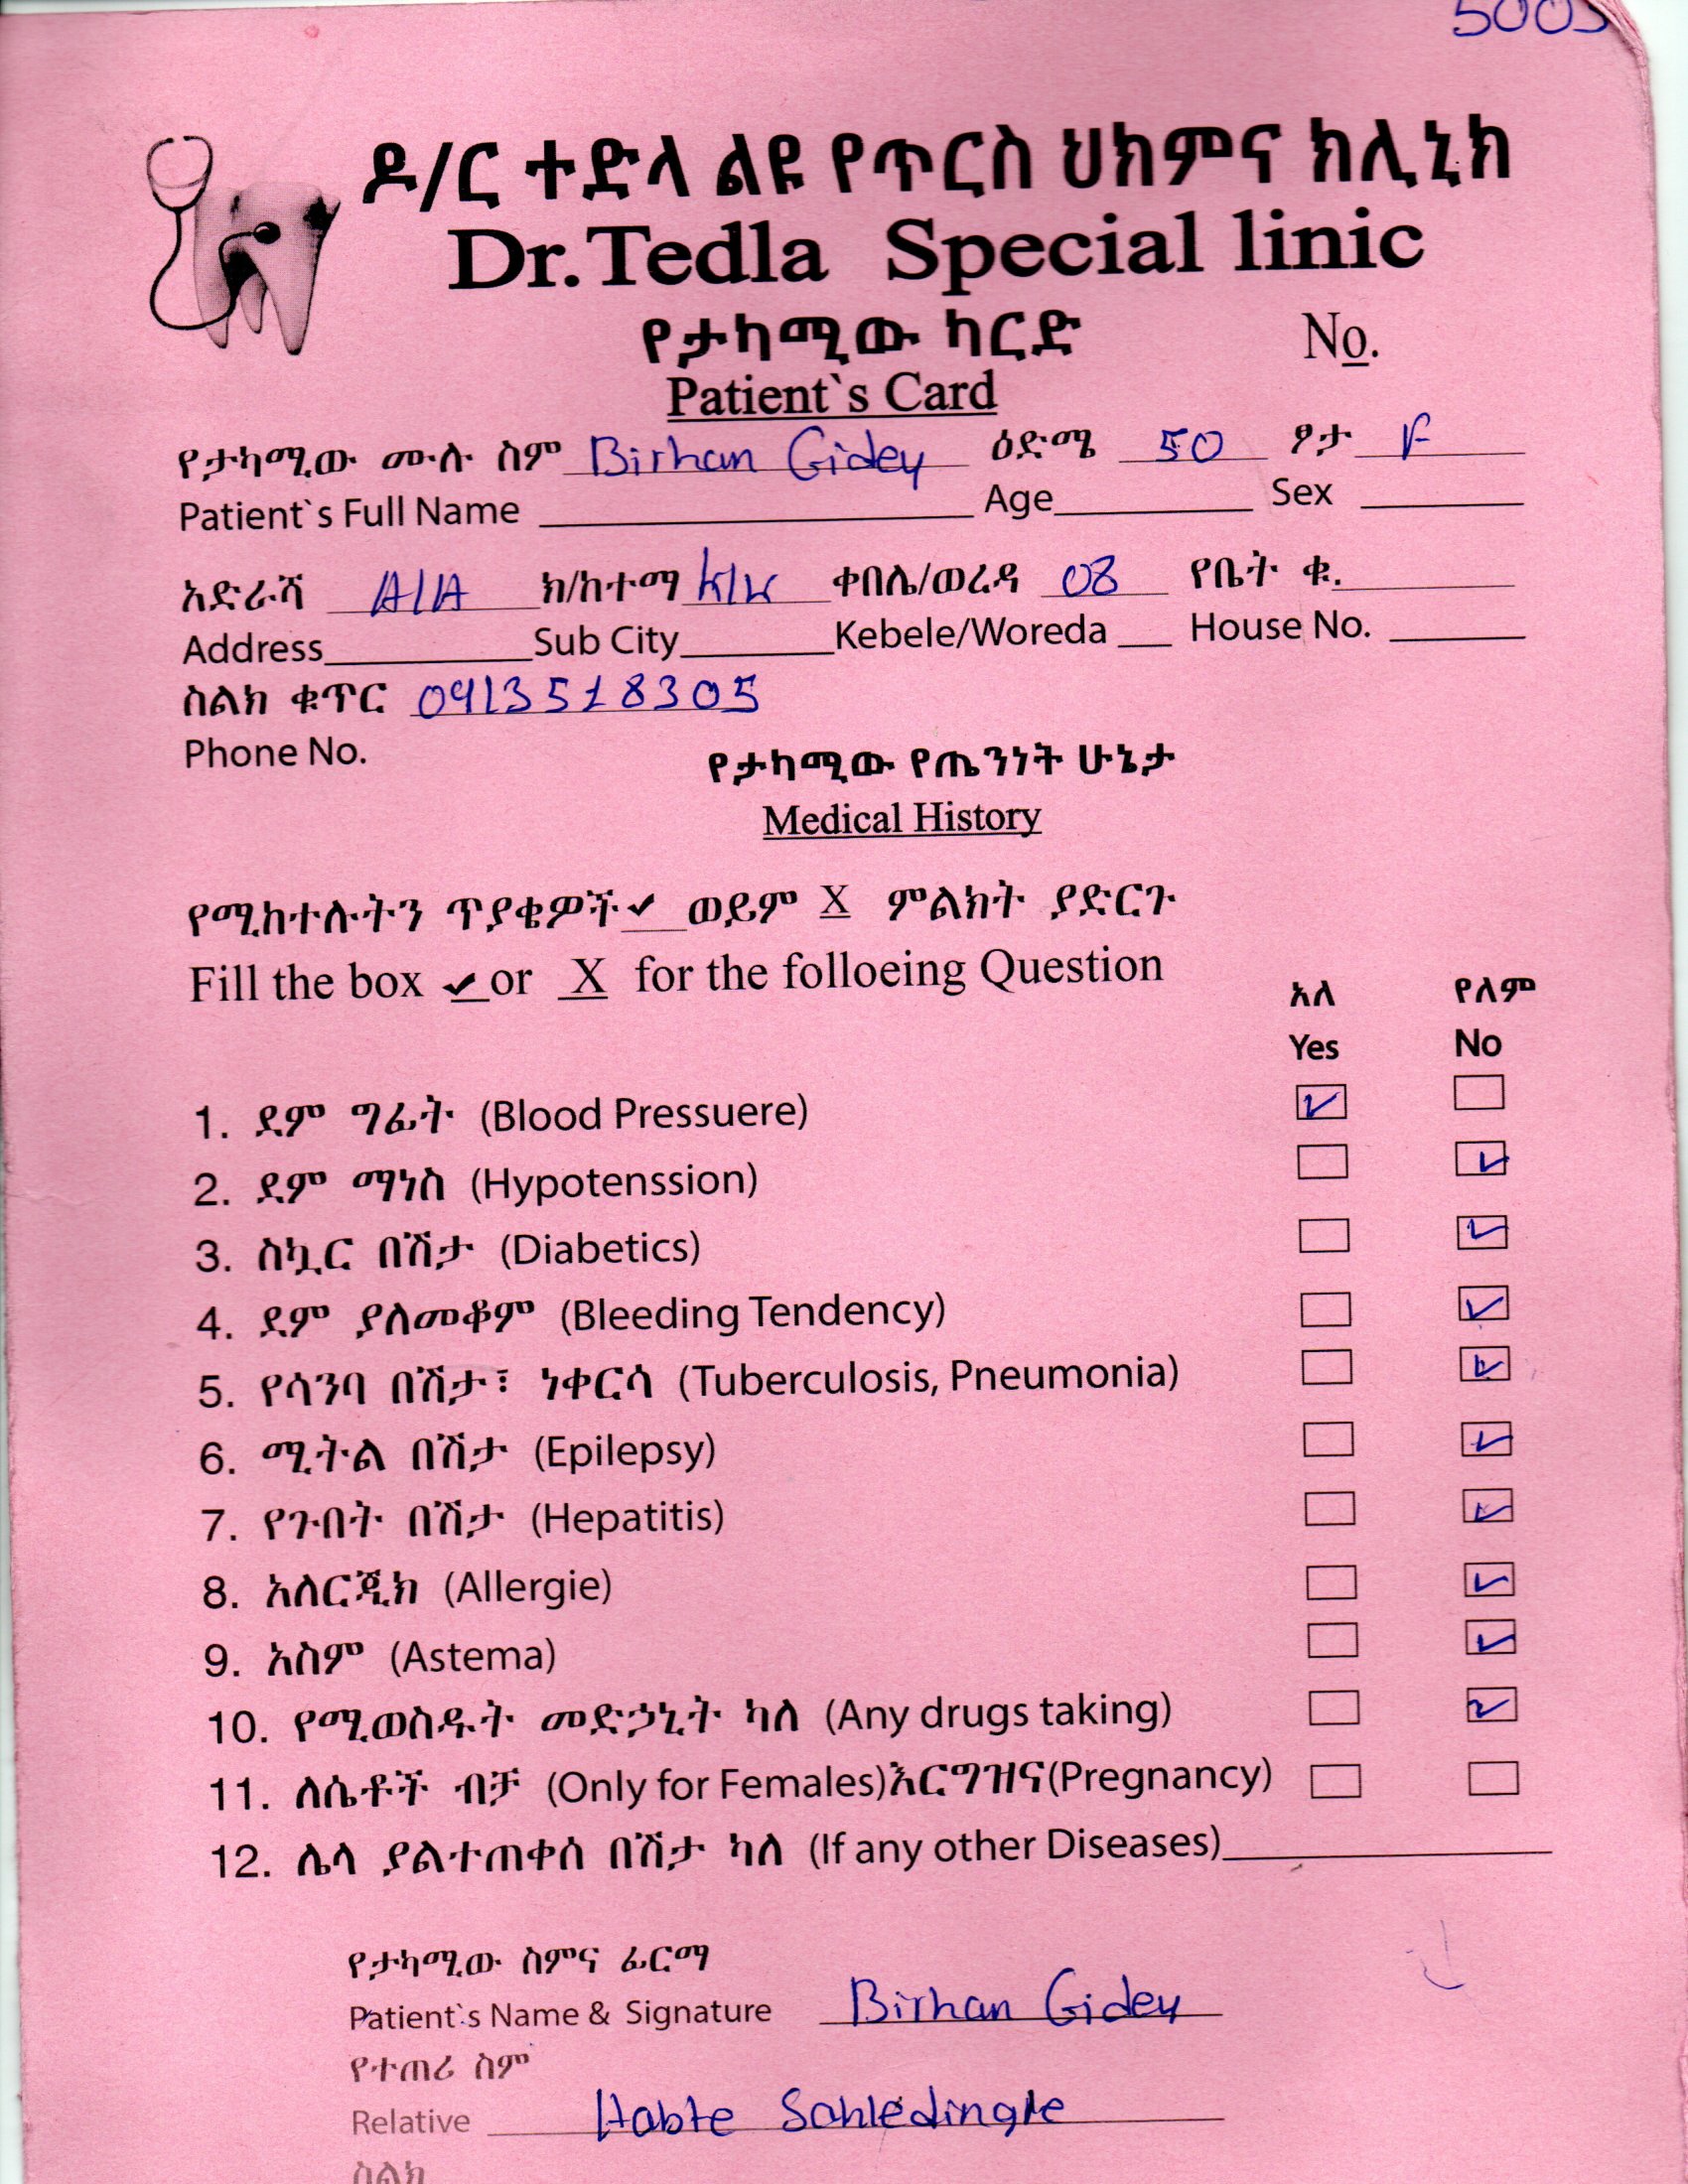 ዶ/ር ተድላ ልዩ የጥርስ ህክምና ክሊኒክ
Dr.Tedla Special linic
የታካሚው ካርድ No.
Patient`s Card
የታካሚው ሙሉ ስም Birhan Gidey ዕድሜ 50 ፆታ F
Patient`s Full Name Age Sex
አድራሻ A/A ክ/ከተማ k/k ቀበሌ/ወረዳ 08 የቤት ቁ.
Address Sub City Kebele/Woreda House No.
ስልክ ቁጥር 0913518305
Phone No.
የታካሚው የጤንነት ሁኔታ
Medical History
የሚከተሉትን ጥያቄዎች ✔ ወይም X ምልክት ያድርጉ
Fill the box ✔ or X for the folloeing Question
አለ የለም
Yes No
1. ደም ግፊት (Blood Pressuere) ✓
2. ደም ማነስ (Hypotenssion) ✓
3. ስኳር በሽታ (Diabetics) ✓
4. ደም ያለመቆም (Bleeding Tendency) ✓
5. የሳንባ በሽታ፣ ነቀርሳ (Tuberculosis, Pneumonia) ✓
6. ሚትል በሽታ (Epilepsy) ✓
7. የጉበት በሽታ (Hepatitis) ✓
8. አለርጂክ (Allergie) ✓
9. አስም (Astema) ✓
10. የሚወስዱት መድኃኒት ካለ (Any drugs taking) ✓
11. ለሴቶች ብቻ (Only for Females)እርግዝና(Pregnancy)
12. ሌላ ያልተጠቀሰ በሽታ ካለ (If any other Diseases)
የታካሚው ስምና ፊርማ
Patient`s Name & Signature Birhan Gidey
የተጠሪ ስም
Relative Habte Sahledingle
ስልክ